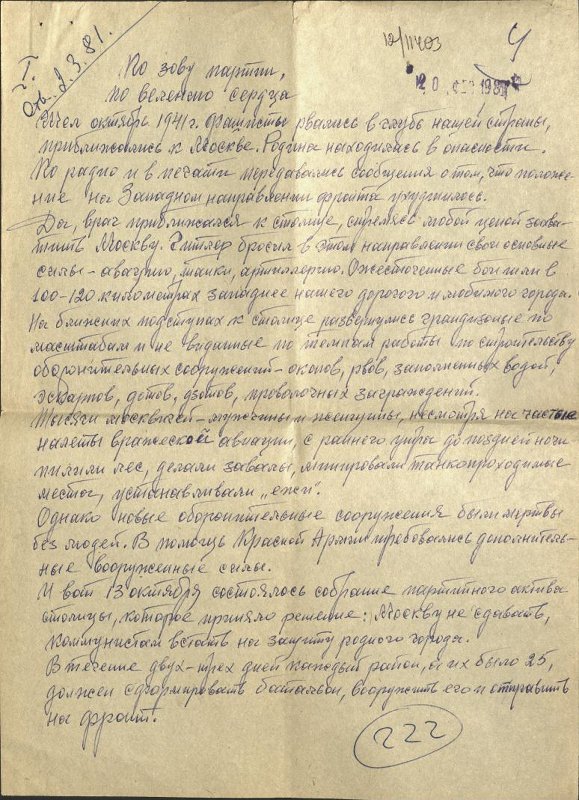 Т
Отв. 2.3.81.
12/11403
Ч
20 1981
По зову партии,
по велению сердца
Шел октябрь 1941 г. Фашисты рвались в глубь нашей страны,
приближались к Москве. Родина находилась в опасности.
По радио и в печати передавались сообщения о том, что положе-
ние на Западном направлении фронта ухудшилось.
Да, враг приближался к столице, стремясь любой ценой захва-
тить Москву. Гитлер бросил в этом направлении свои основные
силы - авиацию, танки, артиллерию. Ожесточенные бои шли в
100-120 километрах западнее нашего дорогого и любимого города.
На ближних подступах к столице развернулись грандиозные по
масштабам и не виданные по темпам работы по строительству
оборонительных сооружений - окопов, рвов, заполненных водой,
эскарпов, дотов, дзотов, проволочных заграждений.
Тысячи москвичей - мужчины и женщины, несмотря на частые
налеты вражеской авиации, с раннего утра до поздней ночи
пилили лес, делали завалы, минировали танкопроходимые
места, устанавливали „ежи".
Однако новые оборонительные сооружения были мертвы
без людей. В помощь Красной Армии требовались дополнитель-
ные вооруженные силы.
И вот 13 октября состоялось собрание партийного актива
столицы, которое приняло решение: Москву не сдавать,
коммунистам встать на защиту родного города.
В течение двух-трех дней каждый район, а их было 25,
должен сформировать батальон, вооружить его и отправить
на фронт.
222